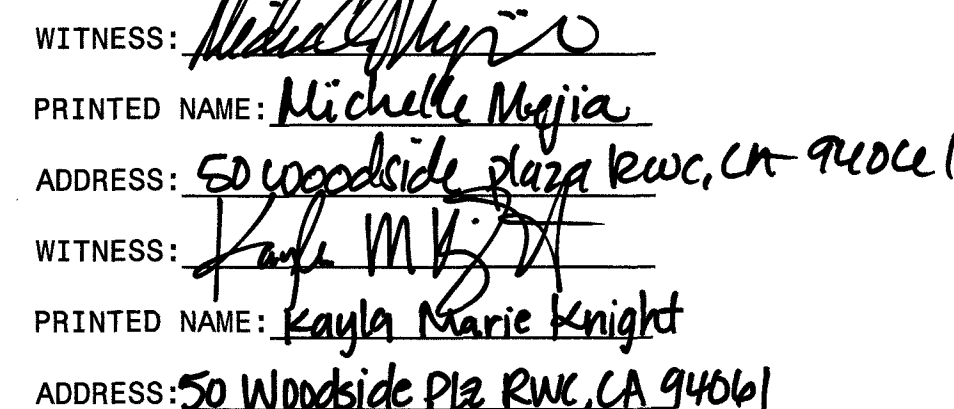 WITNESS: Michelle Mejia
PRINTED NAME: Michelle Mejia
ADDRESS: 50 woodside plaza RWC, CA 94061
WITNESS: Kayla M Knight
PRINTED NAME: Kayla Marie Knight
ADDRESS: 50 Woodside Plz RWC, CA 94061